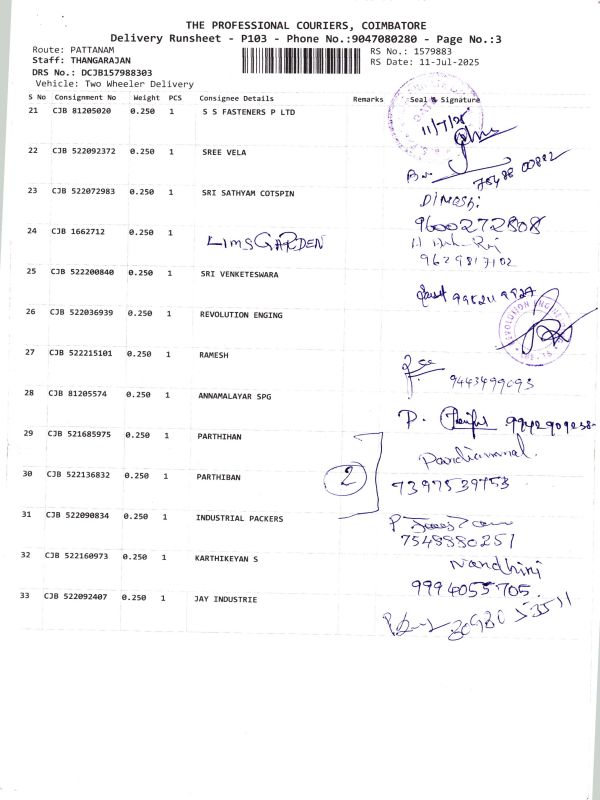 THE PROFESSIONAL COURIERS, COIMBATORE
Delivery Runsheet - P103 - Phone No.:9047080280 - Page No.:3
Route: PATTANAM
Staff: THANGARAJAN
DRS No.: DCJB157988303
Vehicle: Two Wheeler Delivery
RS No.: 1579883
RS Date: 11-Jul-2025
S No Consignment No Weight PCS Consignee Details Remarks Seal & Signature
21 CJB 81205020 0.250 1 S S FASTENERS P LTD
11/7/25
22 CJB 522092372 0.250 1 SREE VELA
23 CJB 522072983 0.250 1 SRI SATHYAM COTSPIN
9600272808
24 CJB 1662712 0.250 1 LIMSGARDEN
9629817102
25 CJB 522200840 0.250 1 SRI VENKETESWARA
26 CJB 522036939 0.250 1 REVOLUTION ENGING
27 CJB 522215101 0.250 1 RAMESH
9443499093
28 CJB 81205574 0.250 1 ANNAMALAYAR SPG
P.
29 CJB 521685975 0.250 1 PARTHIHAN
Pandiammal.
30 CJB 522136832 0.250 1 PARTHIBAN
2
7397539753
31 CJB 522090834 0.250 1 INDUSTRIAL PACKERS
7548880251
32 CJB 522160973 0.250 1 KARTHIKEYAN S
Nandhini
9994055705.
33 CJB 522092407 0.250 1 JAY INDUSTRIE